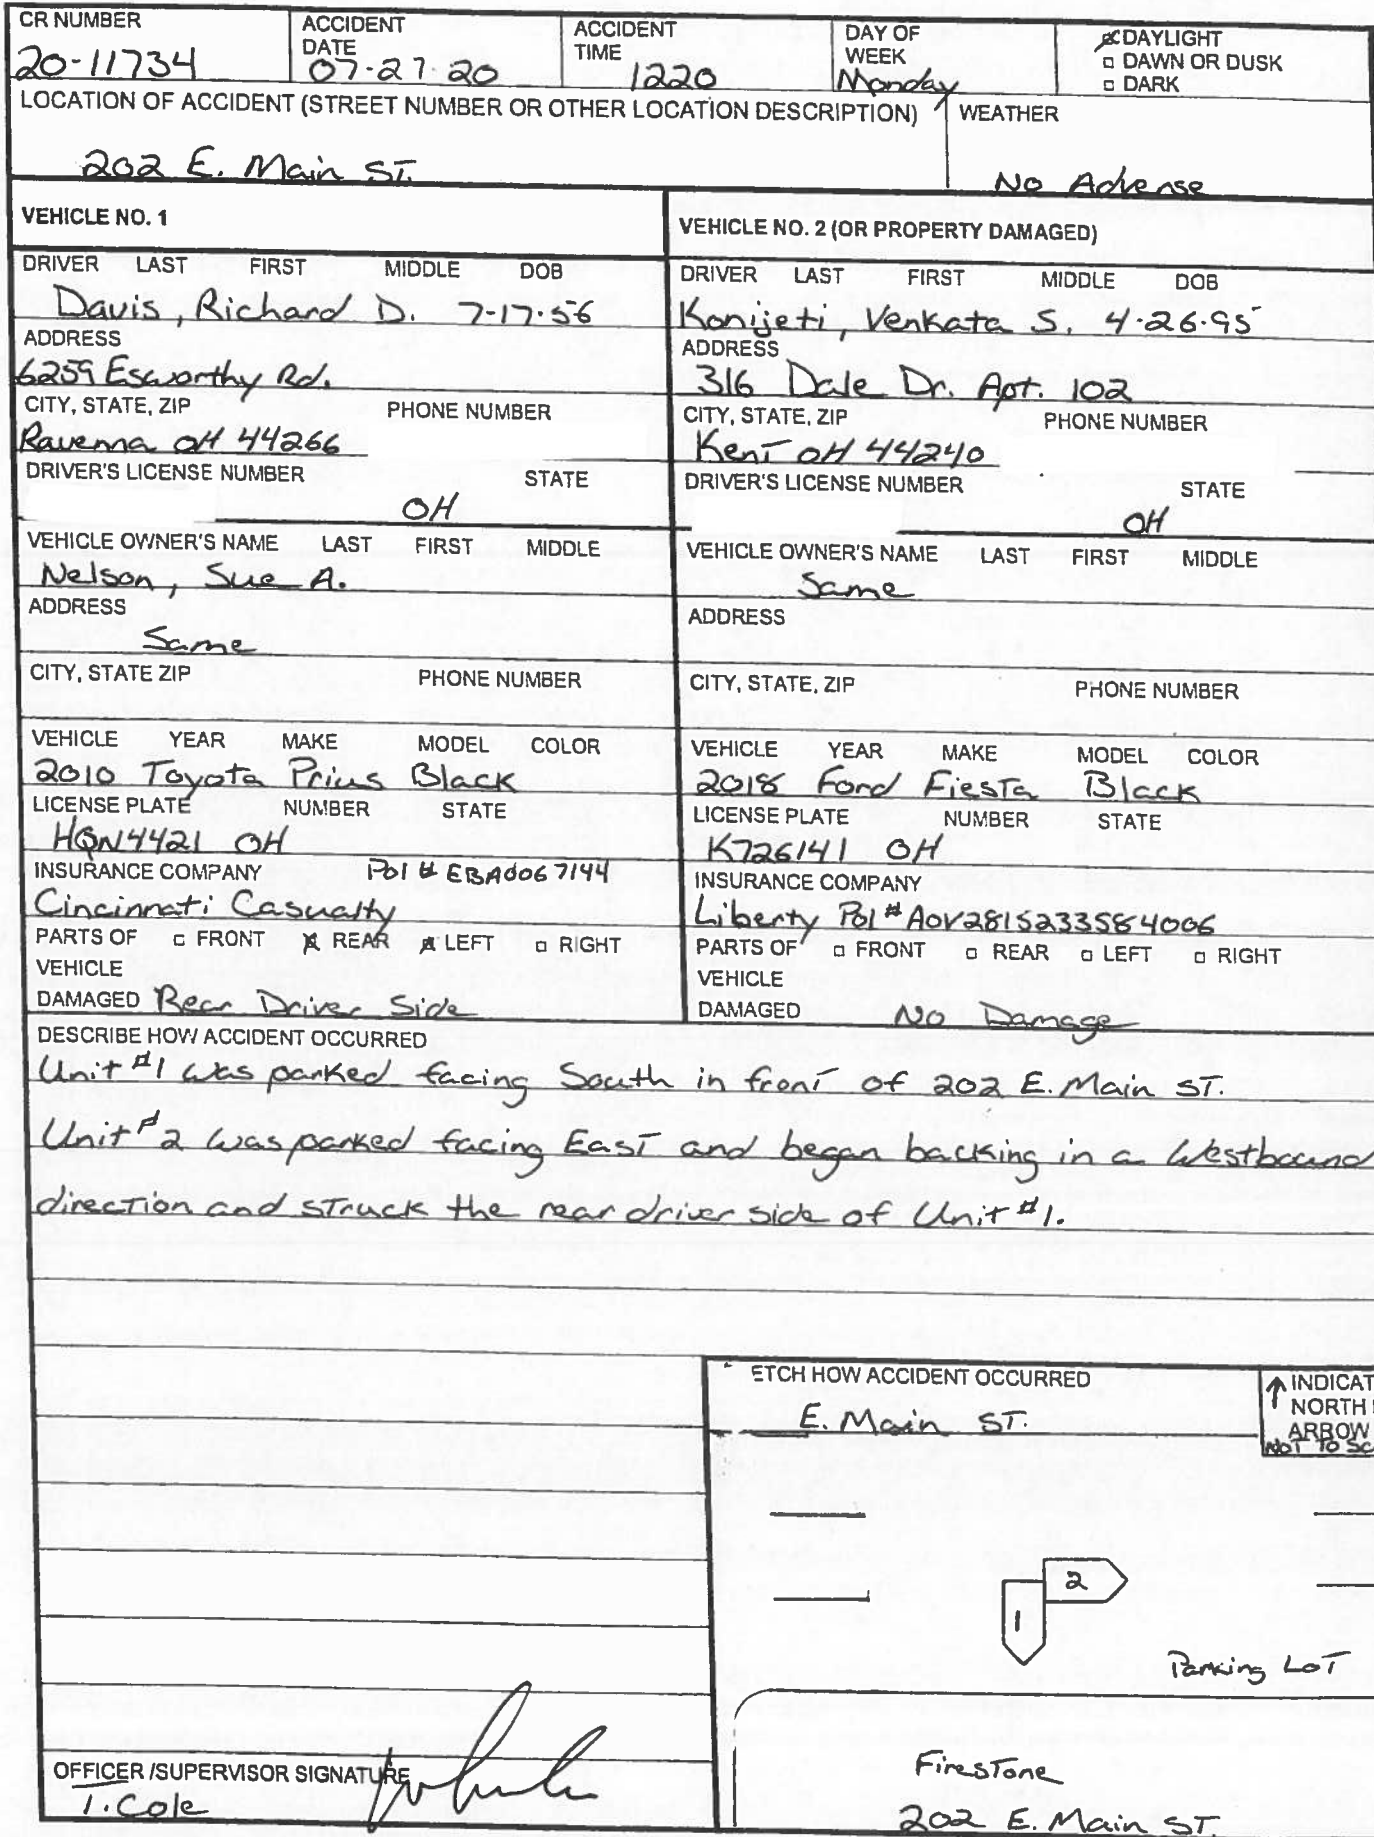 CR NUMBER ACCIDENT DATE ACCIDENT TIME DAY OF WEEK DAYLIGHT
20-11734 07-27-20 1220 Monday DAWN OR DUSK
DARK
LOCATION OF ACCIDENT (STREET NUMBER OR OTHER LOCATION DESCRIPTION) WEATHER
202 E. Main ST. No Adverse
VEHICLE NO. 1
DRIVER LAST FIRST MIDDLE DOB
Davis, Richard D. 7-17-56
ADDRESS
6259 Esworthy Rd.
CITY, STATE, ZIP PHONE NUMBER
Ravenna OH 44266
DRIVER'S LICENSE NUMBER STATE
OH
VEHICLE OWNER'S NAME LAST FIRST MIDDLE
Nelson, Sue A.
ADDRESS
Same
CITY, STATE ZIP PHONE NUMBER
VEHICLE YEAR MAKE MODEL COLOR
2010 Toyota Prius Black
LICENSE PLATE NUMBER STATE
HQN4421 OH
INSURANCE COMPANY Pol # EBA0067144
Cincinnati Casualty
PARTS OF FRONT REAR LEFT RIGHT
VEHICLE
DAMAGED Rear Driver Side
VEHICLE NO. 2 (OR PROPERTY DAMAGED)
DRIVER LAST FIRST MIDDLE DOB
Konijeti, Venkata S. 4-26-95
ADDRESS
316 Dale Dr. Apt. 102
CITY, STATE, ZIP PHONE NUMBER
Kent OH 44240
DRIVER'S LICENSE NUMBER STATE
OH
VEHICLE OWNER'S NAME LAST FIRST MIDDLE
Same
ADDRESS
CITY, STATE, ZIP PHONE NUMBER
VEHICLE YEAR MAKE MODEL COLOR
2018 Ford Fiesta Black
LICENSE PLATE NUMBER STATE
K726141 OH
INSURANCE COMPANY
Liberty Pol # AOV2815233584006
PARTS OF FRONT REAR LEFT RIGHT
VEHICLE
DAMAGED No Damage
DESCRIBE HOW ACCIDENT OCCURRED
Unit #1 was parked facing South in front of 202 E. Main ST.
Unit #2 was parked facing East and began backing in a Westbound
direction and struck the rear driver side of Unit #1.
ETCH HOW ACCIDENT OCCURRED
INDICAT
NORTH
ARROW
NOT TO SC
E. Main ST.
2
1
Parking LoT
Firestone
202 E. Main ST.
OFFICER /SUPERVISOR SIGNATURE
T. Cole